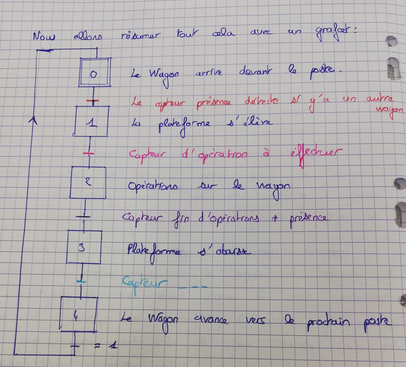 Nous allons résumer tout cela avec un grafcet:
0 Le Wagon arrive devant le poste.
Le capteur présence détecte si y'a un autre wagon
1 La plateforme s'élève
Capteur d'opération à effectuer
2 Opérations sur le wagon
Capteur fin d'opérations + présence
3 Plateforme s'abaisse
Capteur ---
4 Le Wagon avance vers le prochain poste
= 1